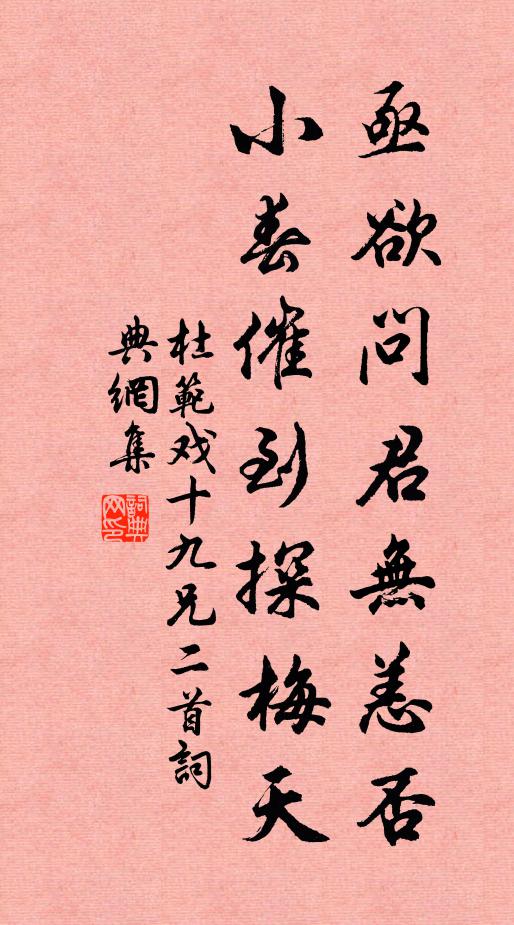 亟欲問君無恙否
小春催到探梅天
杜範戏十九兄二首詞
典網集
詞典網印